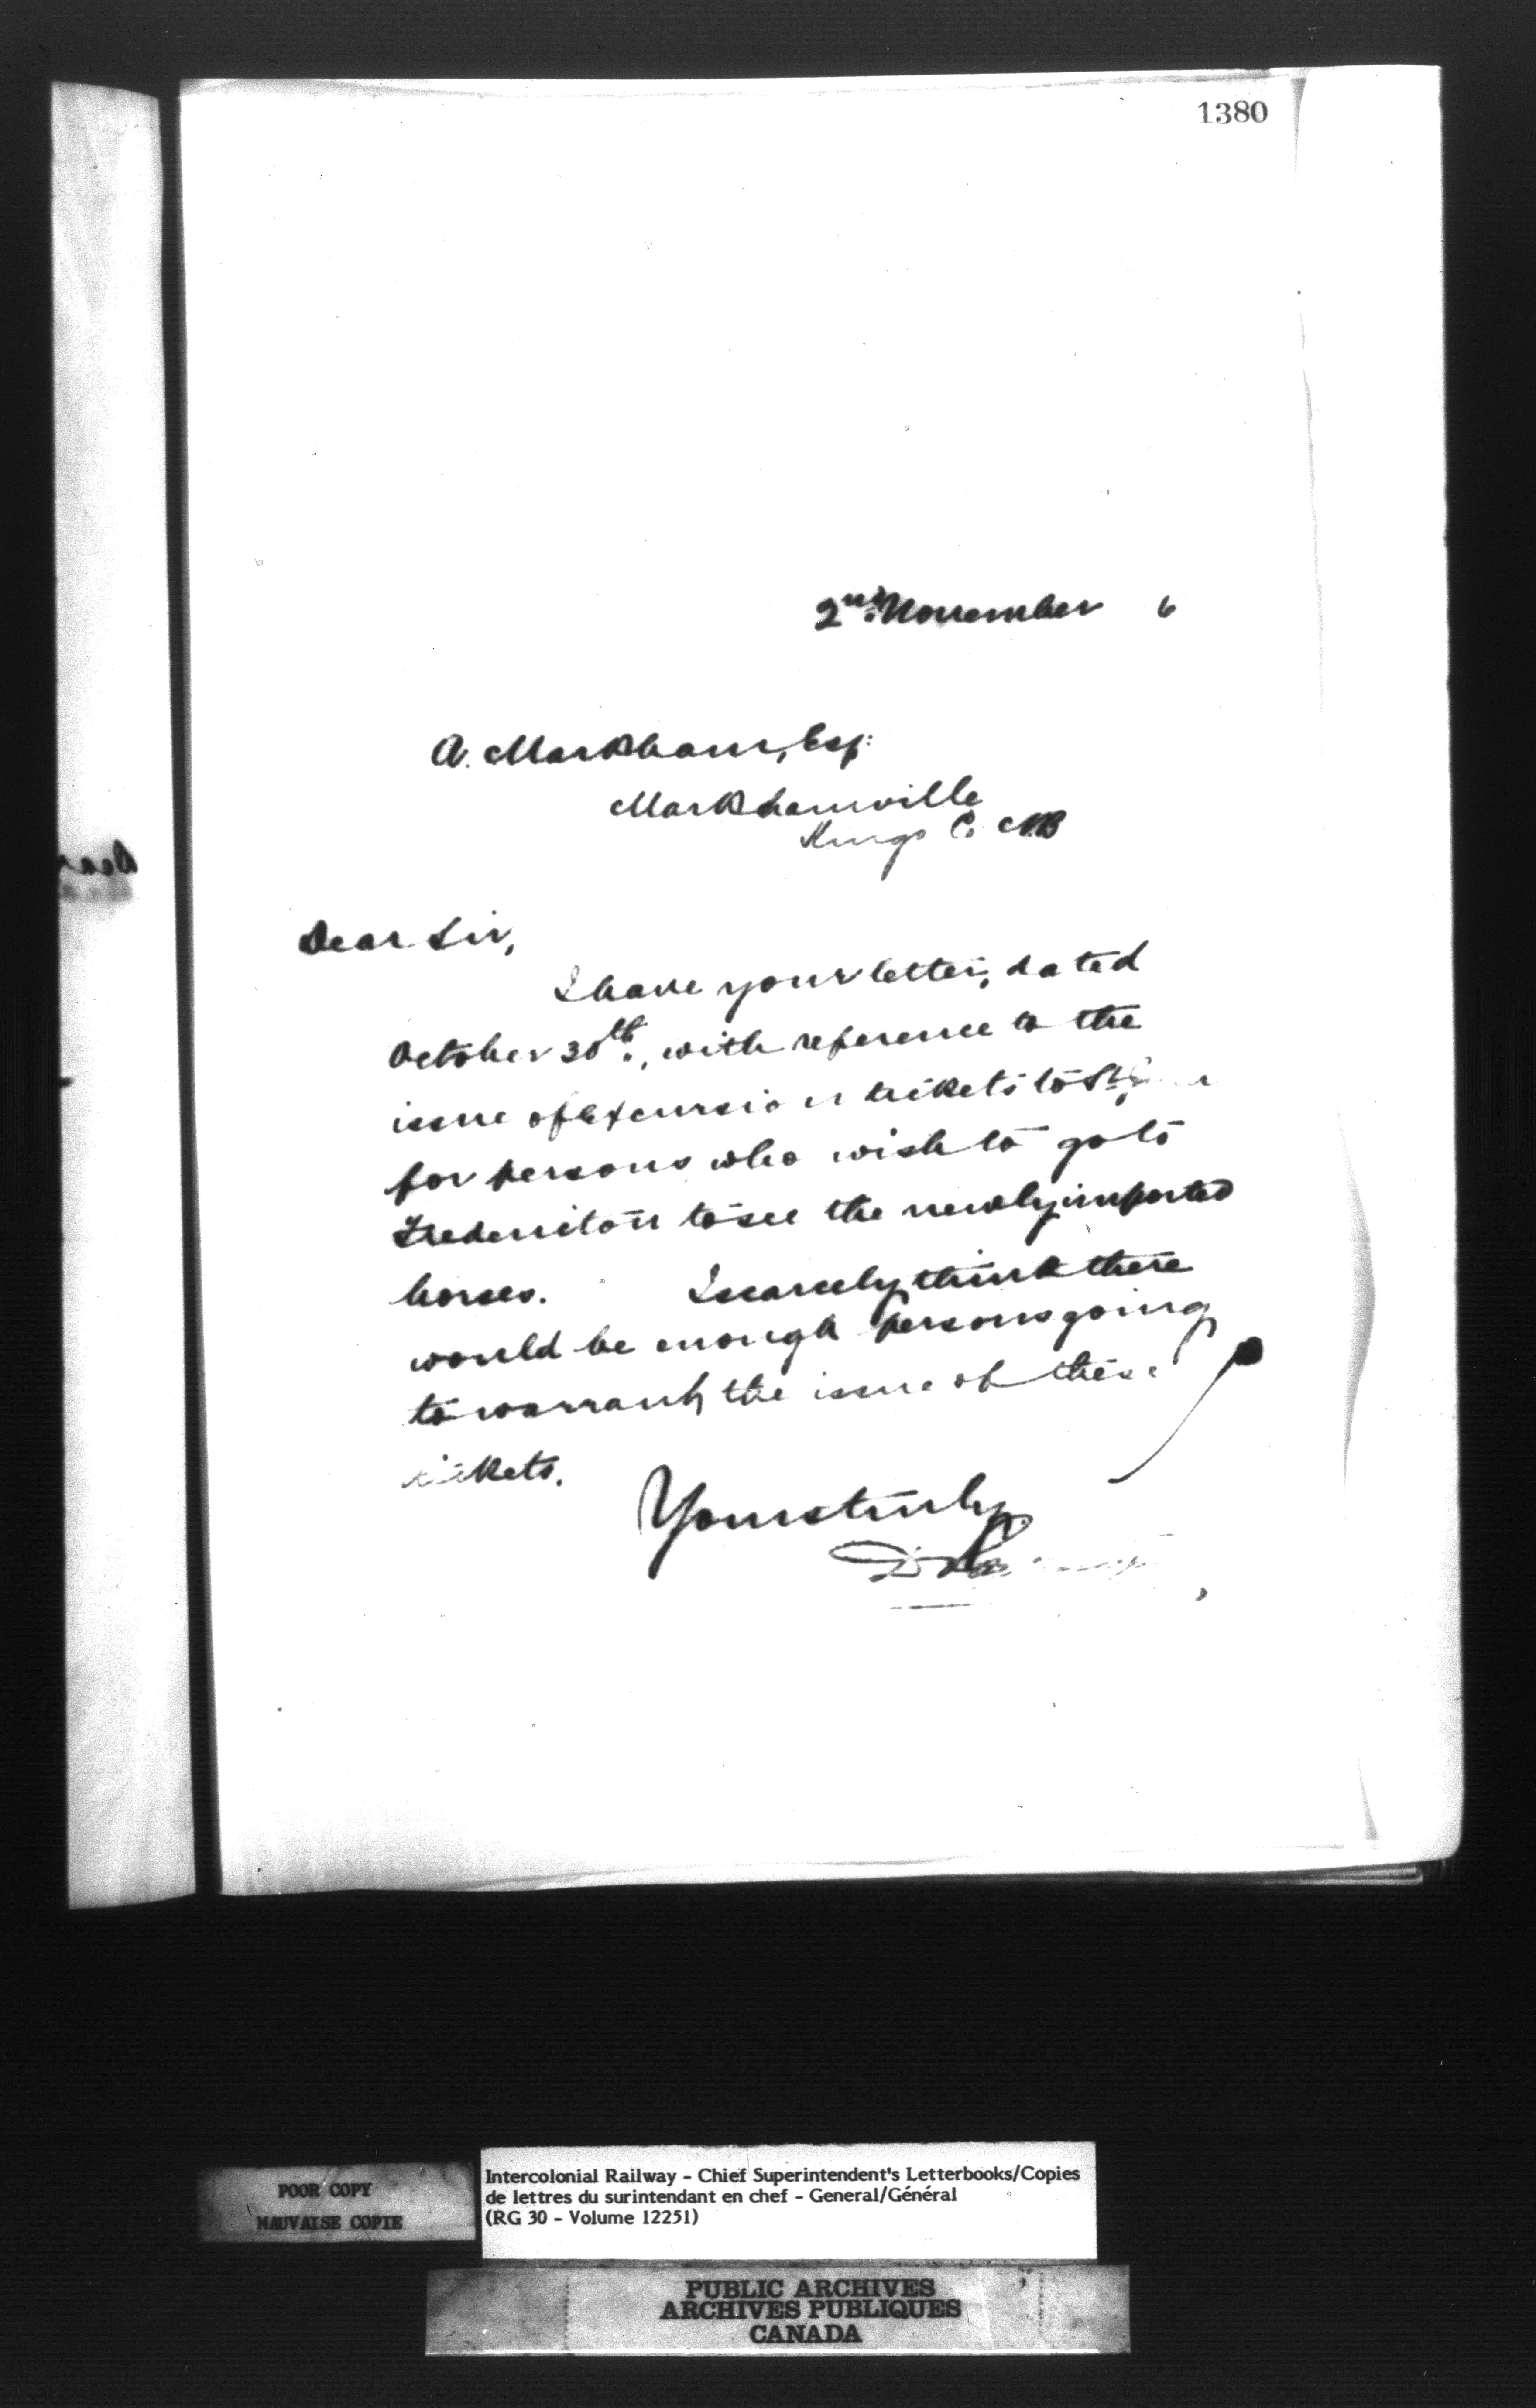 1380
2nd November 6
A. Markham, Esq:
Markhamville
Kings Co. NB
Dear Sir,
I have your letter, dated
October 30th, with reference to the
issue of Excursion tickets to St.
for persons who wish to go to
Fredericton to see the newly imported
horses. I scarcely think there
would be enough persons going
to warrant the issue of these
tickets.
Yours truly
D
POOR COPY
MAUVAISE COPIE
Intercolonial Railway - Chief Superintendent's Letterbooks/Copies
de lettres du surintendant en chef - General/Général
(RG 30 - Volume 12251)
PUBLIC ARCHIVES
ARCHIVES PUBLIQUES
CANADA